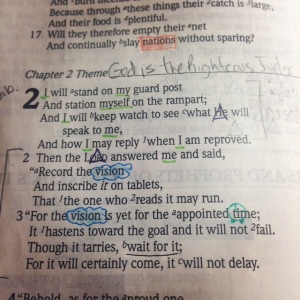 And burn incense
Because through ᵃthese things their ²catch is ³large,
And their food is ⁴plentiful.
17 Will they therefore empty their ᵃnet
And continually ᵇslay nations without sparing?
Chapter 2 Theme God is the Righteous Judge
2 I will ᵃstand on my guard post
And station myself on the rampart;
And I will ᵇkeep watch to see ᶜwhat He will
speak to me,
And how I may reply ¹when I am reproved.
2 Then the LORD answered me and said,
"ᵃRecord the vision
And inscribe it on tablets,
That ¹the one who ²reads it may run.
3 "For the vision is yet for the ᵃappointed time;
It ¹hastens toward the goal and it will not ²fail.
Though it tarries, ᵇwait for it;
For it will certainly come, it ᶜwill not delay.
4 "Behold, as for the ᵃproud one,